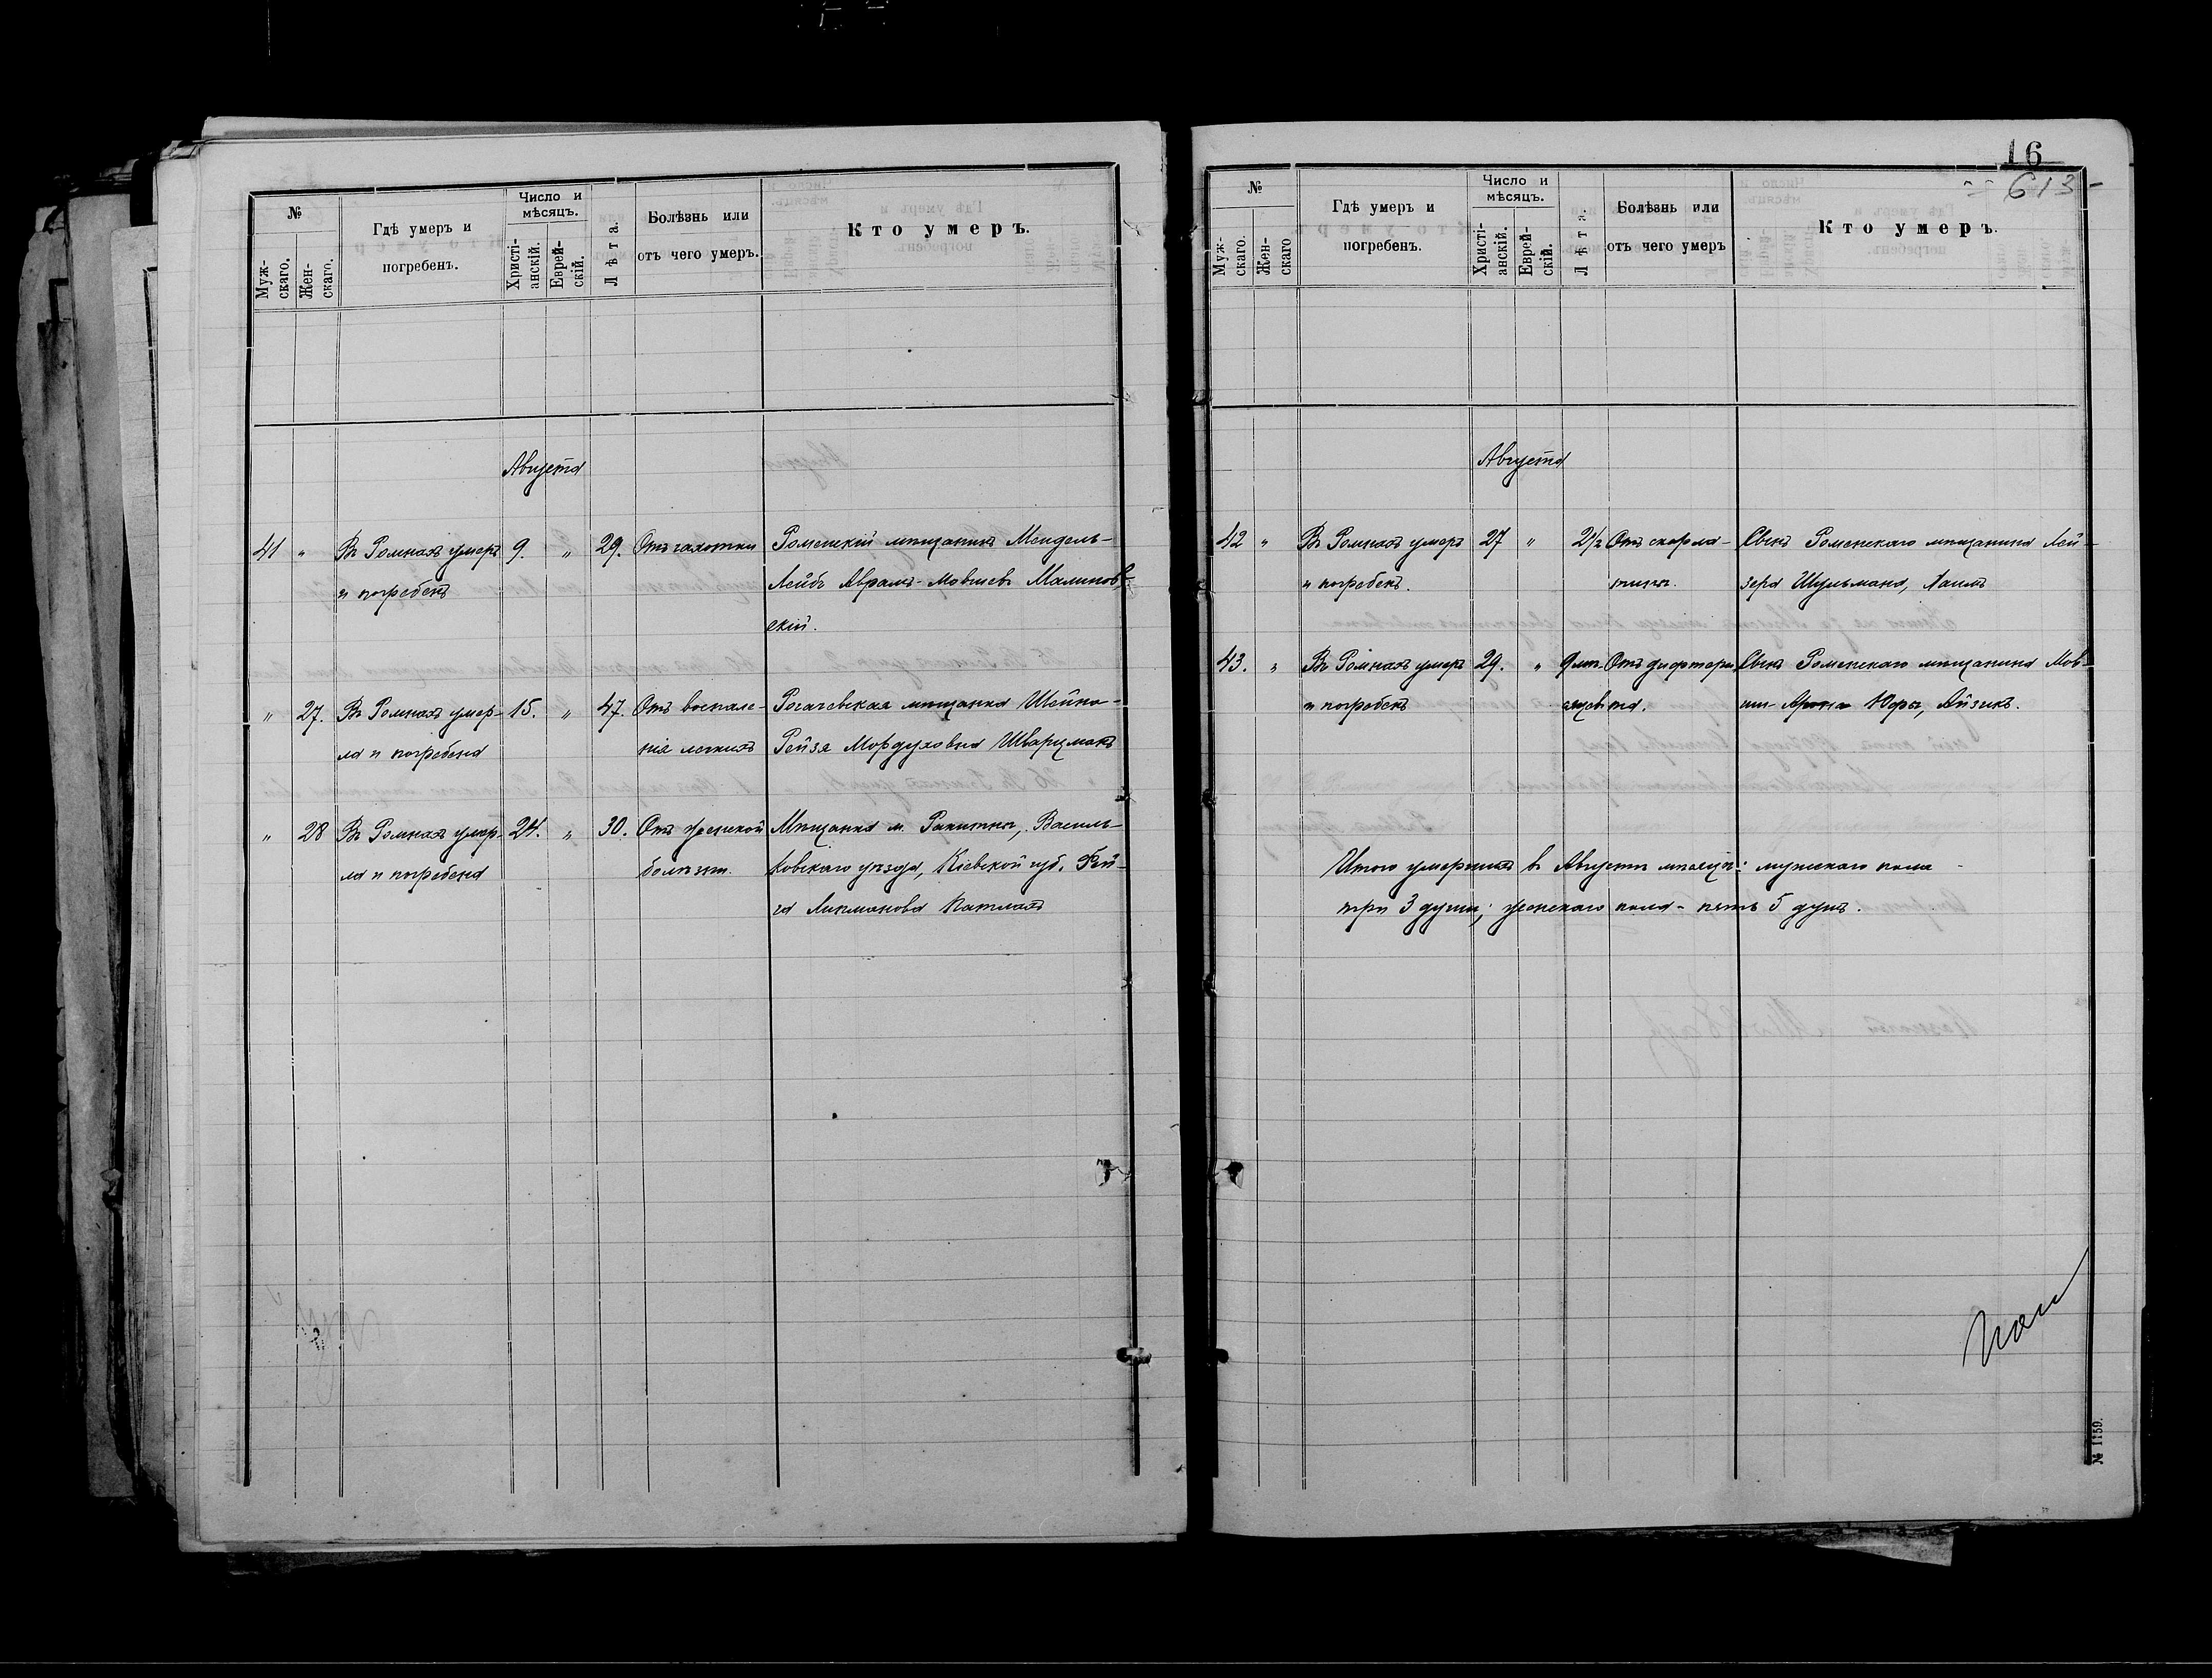 №
Муж-
скаго.
Жен-
скаго.
Гдѣ умеръ и
погребенъ.
Число и
мѣсяцъ.
Христі-
анскій.
Еврей-
скій.
Лѣта.
Болѣзнь или
отъ чего умеръ.
Кто умеръ.
Августа
41 " Въ Ромнахъ умеръ 9. " 29. Отъ чахотки Роменскій мѣщанинъ Мендель-
и погребенъ Лейбъ Абрамъ-Мовшевъ Малинов-
скій.
" 27. Въ Ромнахъ умер- 15. " 47. Отъ воспале- Рогачевская мѣщанка Шейна-
ла и погребена нія легкихъ Рейзя Мордуховна Шварцманъ
" 28 Въ Ромнахъ умер- 24. " 30. Отъ женской Мѣщанка м. Ракитны, Василь-
ла и погребена болѣзни. ковскаго уѣзда, Кіевской губ.
16
613-
№
Муж-
скаго.
Жен-
скаго
Гдѣ умеръ и
погребенъ.
Число и
мѣсяцъ.
Христі-
анскій.
Еврей-
скій.
Лѣта.
Болѣзнь или
отъ чего умеръ
Кто умеръ.
Августа
42 " Въ Ромнахъ умеръ 27 " 2½ Отъ скарла- Сынъ Роменскаго мѣщанина Лей-
и погребенъ. тины. зера Шульмана, Хаимъ
43. " Въ Ромнахъ умеръ 29. " 9 мѣ- Отъ дифтери Сынъ Роменскаго мѣщанина Мов-
и погребенъ сяцевъ та. ши-Арона Юфы, Айзикъ.
Итого умершихъ въ Августѣ мѣсяцѣ: мужскаго пола
три 3 души; женскаго пола - пять 5 душъ.
№ 1159.